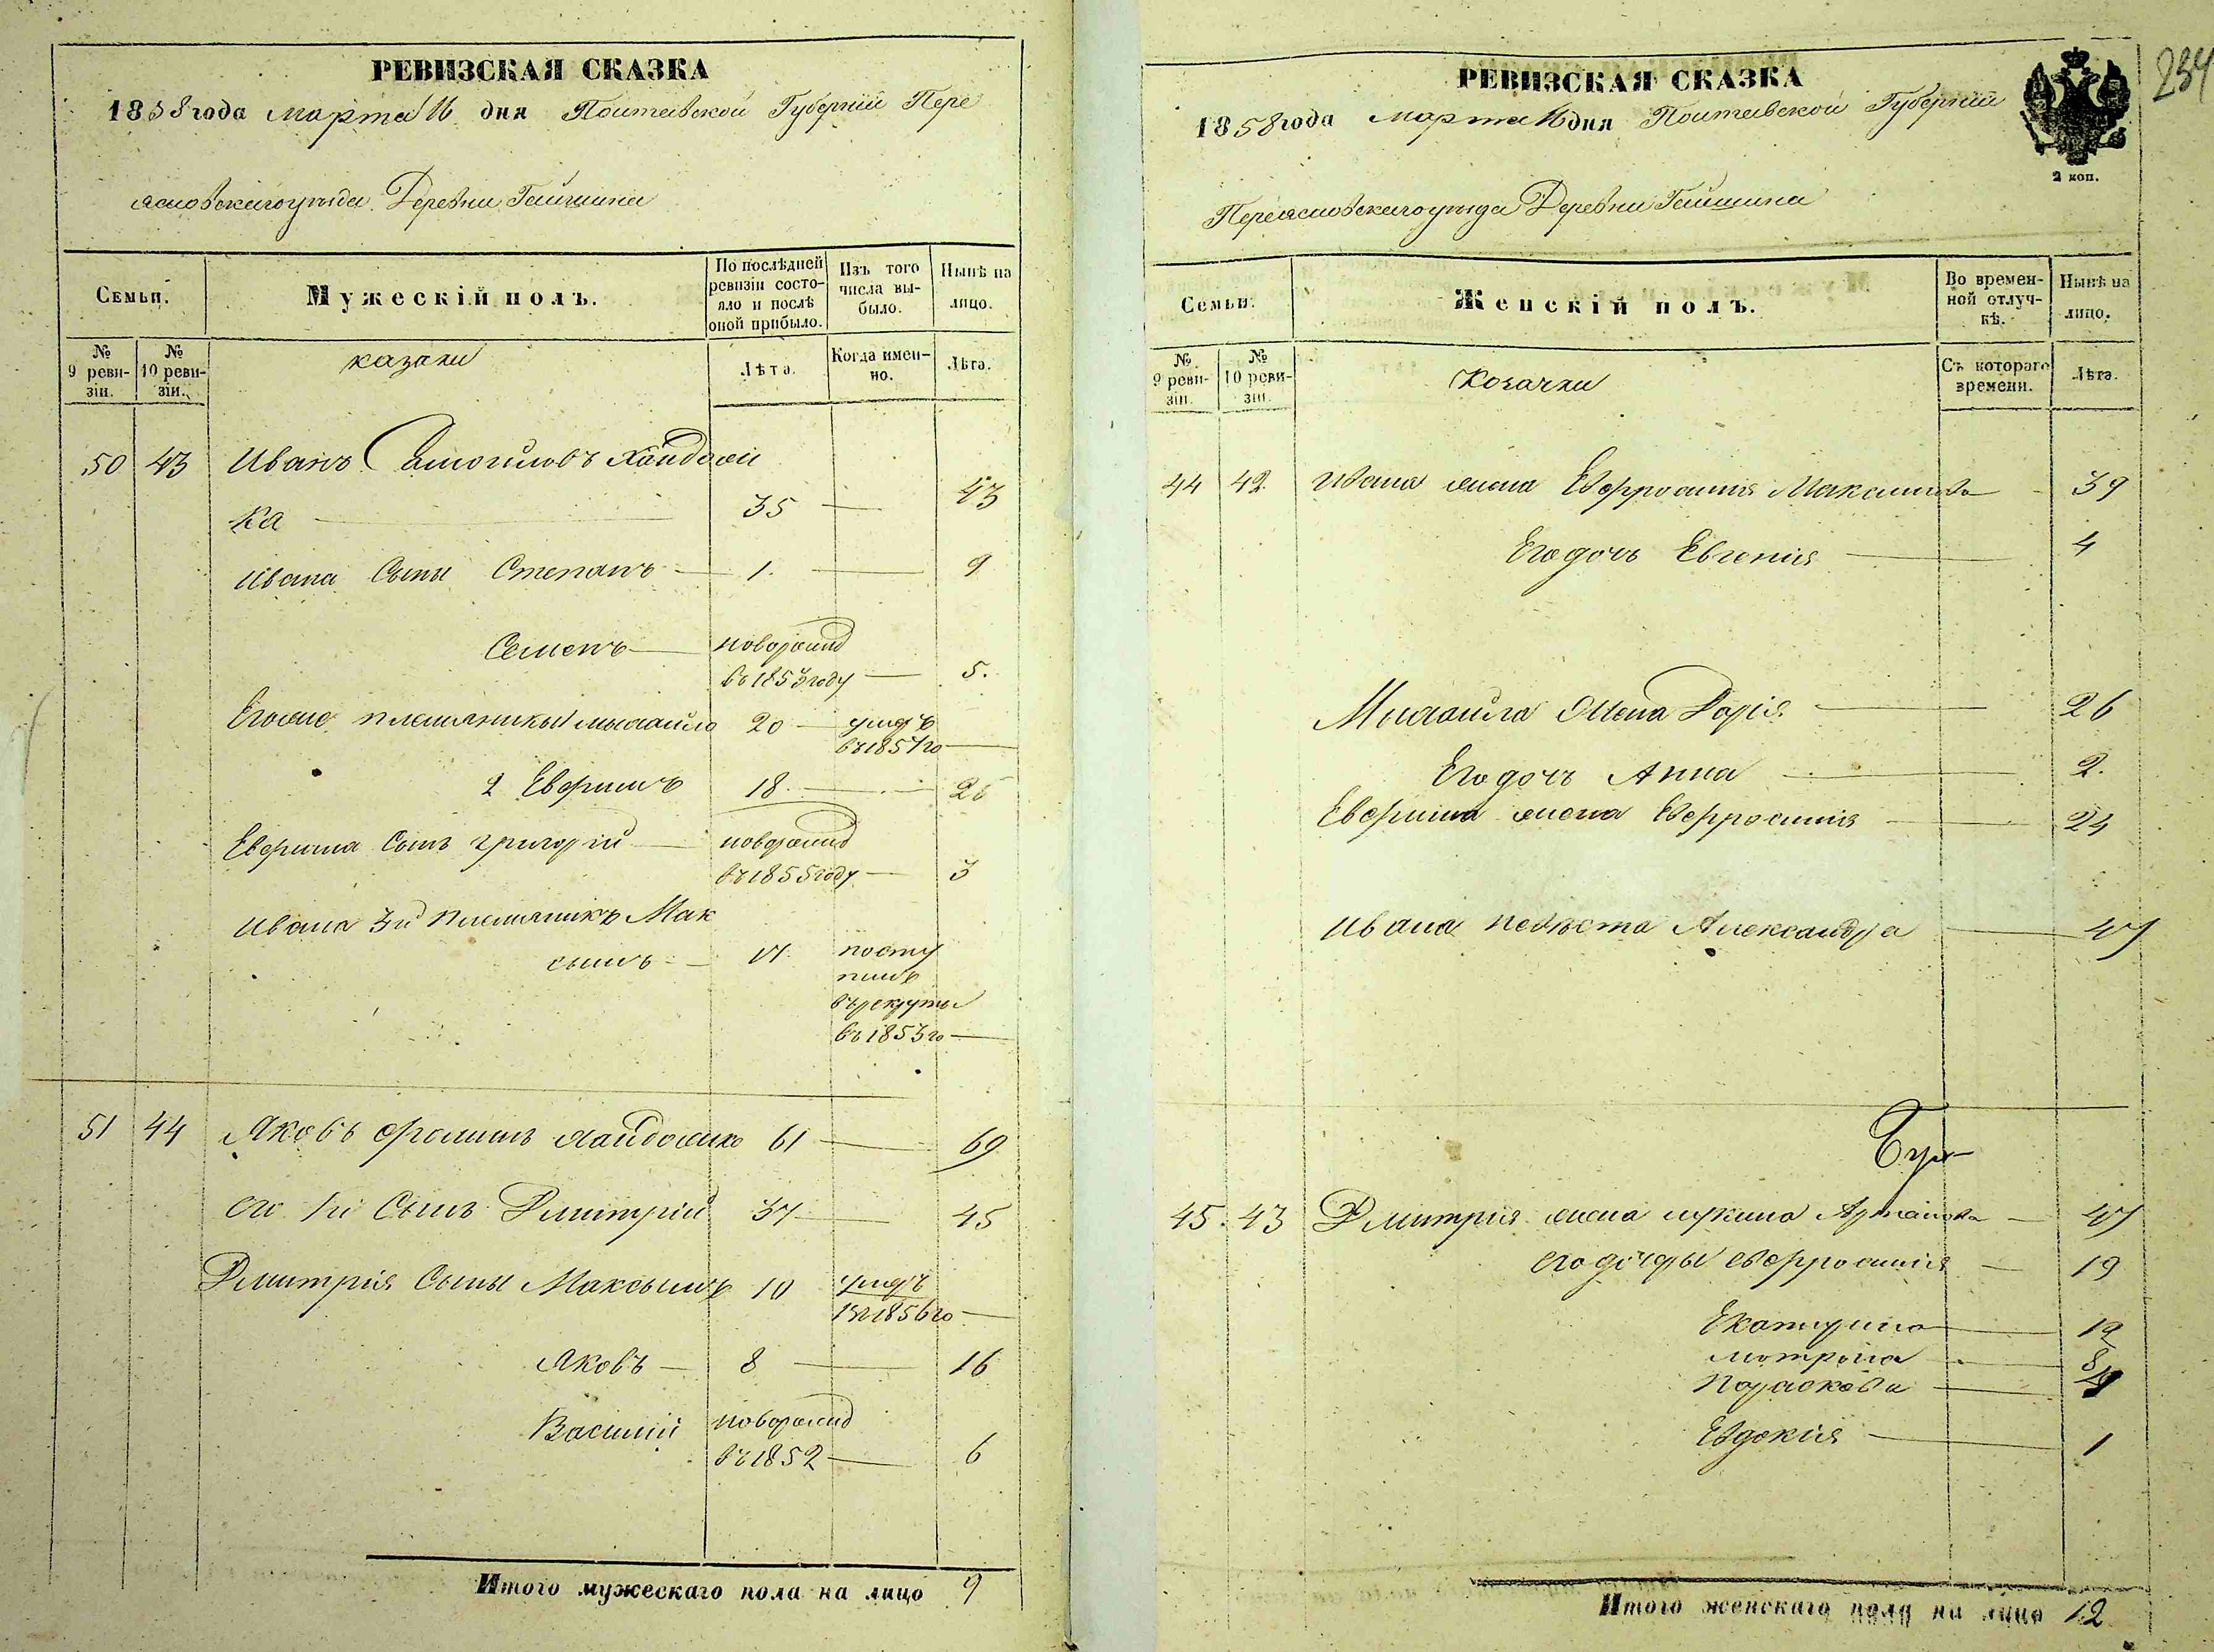 РЕВИЗСКАЯ СКАЗКА
1858 года марта 16 дня Полтавской Губернии Пере
яславскаго уезда Деревни Гайшина
Семьи.
Мужескій полъ.
По послѣдней ревизіи состояло и послѣ оной прибыло.
Изъ того числа выбыло.
Нынѣ на лицо.
№ 9 ревизіи.
№ 10 ревизіи.
казаки
Лѣта.
Когда именно.
Лѣта.
50 43 Иванъ
ка 35 — 43
Ивана Сыны Степанъ — 1. — 9
Семенъ — новорожд
въ 1853 году — 5.
Егоже племянники 20 — умеръ
2 18. — 26
Сынъ григорій — новорожд
въ 1855 году — 3
Ивана 3й племянникъ Мак
симъ — посту
пилъ
въ рекруты
въ 1853 го —
51 44 Яковъ 61 — 69
его 1й Сынъ Дмитрій 37 — 45
Дмитрія Сыны Максымъ 10 умеръ
въ 1856 го —
Яковъ — 8 — 16
Василій новорожд
въ 1852 — 6
Итого мужескаго пола на лицо 9
РЕВИЗСКАЯ СКАЗКА
1858 года марта 16 дня Полтавской Губернии
2 коп.
234
Переяславскаго уезда Деревни Гайшина
Семьи.
Женскій полъ.
Во временной отлучкѣ.
Нынѣ на лицо.
№ 9 ревизіи.
№ 10 ревизіи.
Козачки
Съ котораго времени.
Лѣта.
44 42. Ивана жена Евфросинія Максимова — 39
Его дочь Евгенія — 4
Михайла жена Дарія — 26
Его дочь Анна — 2.
жена Евфросинія — 24
Ивана невѣста Александра — 47
45. 43 Дмитрія жена — 47
его дочери Евфросинія — 19
Екатерина — 12
мотрона — 8
Параскева —
Евдокія — 1
Итого женскаго пола на лицо 12